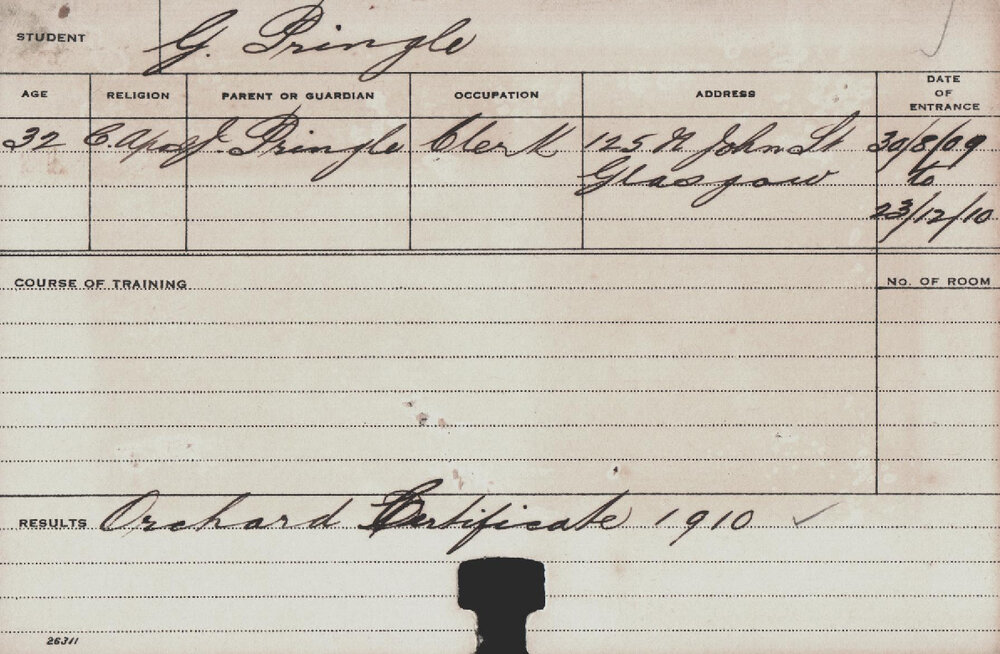 STUDENT G. Pringle
AGE RELIGION PARENT OR GUARDIAN OCCUPATION ADDRESS DATE OF ENTRANCE
32 C. Apos J. Pringle Clerk 125 N John St 30/8/09
Glasgow to
23/12/10
COURSE OF TRAINING No. OF ROOM
RESULTS Orchard Certificate 1910
26311